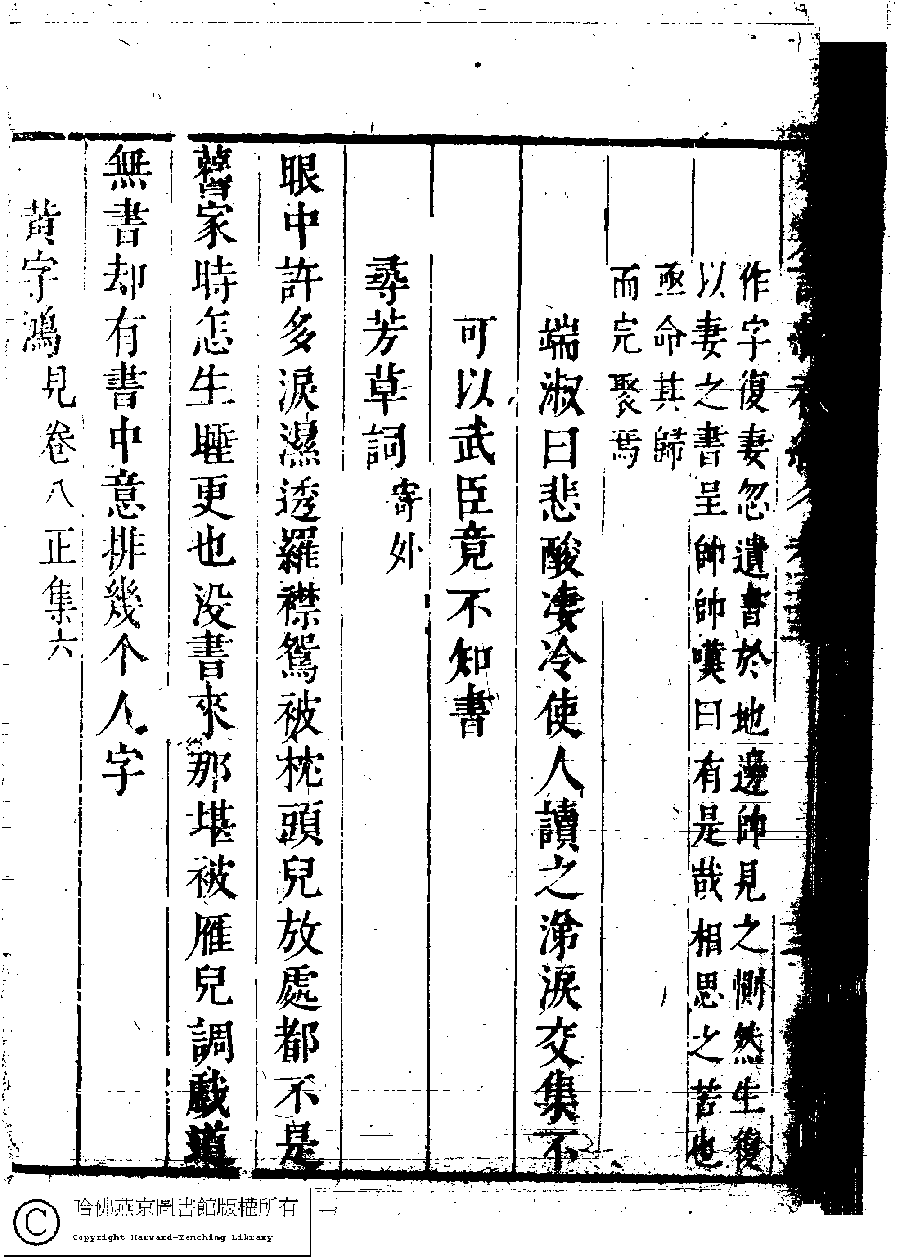 作字復妻忽遺書於地邊帥見之惻然生復
以妻之書呈帥帥嘆曰有是哉相思之苦也
亟命其歸
而完聚焉
端淑曰悲酸凄冷使人讀之涕淚交集不
可以武臣竟不知書
尋芳草詞 寄外
眼中許多淚濕透羅襟鴛被枕頭兒放處都不是
舊家時怎生睡更也没書來那堪被雁兒調戲道
無書却有書中意排幾个人字
黄字鴻見卷八正集六
哈佛燕京圖書館版權所有
Copyright Harvard-Yenching Library